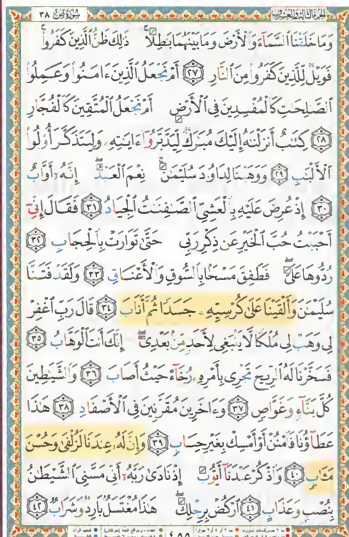 سُورَةُ صٓ ٣٨
وَمَا خَلَقْنَا ٱلسَّمَآءَ وَٱلْأَرْضَ وَمَا بَيْنَهُمَا بَٰطِلًا ۚ ذَٰلِكَ ظَنُّ ٱلَّذِينَ كَفَرُوا۟ ۚ
فَوَيْلٌ لِّلَّذِينَ كَفَرُوا۟ مِنَ ٱلنَّارِ ٢٧ أَمْ نَجْعَلُ ٱلَّذِينَ ءَامَنُوا۟ وَعَمِلُوا۟
ٱلصَّٰلِحَٰتِ كَٱلْمُفْسِدِينَ فِى ٱلْأَرْضِ أَمْ نَجْعَلُ ٱلْمُتَّقِينَ كَٱلْفُجَّارِ
٢٨ كِتَٰبٌ أَنزَلْنَٰهُ إِلَيْكَ مُبَٰرَكٌ لِّيَدَّبَّرُوٓا۟ ءَايَٰتِهِۦ وَلِيَتَذَكَّرَ أُو۟لُوا۟
ٱلْأَلْبَٰبِ ٢٩ وَوَهَبْنَا لِدَاوُۥدَ سُلَيْمَٰنَ ۚ نِعْمَ ٱلْعَبْدُ ۖ إِنَّهُۥٓ أَوَّابٌ
٣٠ إِذْ عُرِضَ عَلَيْهِ بِٱلْعَشِىِّ ٱلصَّٰفِنَٰتُ ٱلْجِيَادُ ٣١ فَقَالَ إِنِّىٓ
أَحْبَبْتُ حُبَّ ٱلْخَيْرِ عَن ذِكْرِ رَبِّى حَتَّىٰ تَوَارَتْ بِٱلْحِجَابِ ٣٢
رُدُّوهَا عَلَىَّ ۖ فَطَفِقَ مَسْحًۢا بِٱلسُّوقِ وَٱلْأَعْنَاقِ ٣٣ وَلَقَدْ فَتَنَّا
سُلَيْمَٰنَ وَأَلْقَيْنَا عَلَىٰ كُرْسِيِّهِۦ جَسَدًا ثُمَّ أَنَابَ ٣٤ قَالَ رَبِّ ٱغْفِرْ
لِى وَهَبْ لِى مُلْكًا لَّا يَنۢبَغِى لِأَحَدٍ مِّنۢ بَعْدِىٓ ۖ إِنَّكَ أَنتَ ٱلْوَهَّابُ ٣٥
فَسَخَّرْنَا لَهُ ٱلرِّيحَ تَجْرِى بِأَمْرِهِۦ رُخَآءً حَيْثُ أَصَابَ ٣٦ وَٱلشَّيَٰطِينَ
كُلَّ بَنَّآءٍ وَغَوَّاصٍ ٣٧ وَءَاخَرِينَ مُقَرَّنِينَ فِى ٱلْأَصْفَادِ ٣٨ هَٰذَا
عَطَآؤُنَا فَٱمْنُنْ أَوْ أَمْسِكْ بِغَيْرِ حِسَابٍ ٣٩ وَإِنَّ لَهُۥ عِندَنَا لَزُلْفَىٰ وَحُسْنَ
مَـَٔابٍ ٤٠ وَٱذْكُرْ عَبْدَنَآ أَيُّوبَ إِذْ نَادَىٰ رَبَّهُۥٓ أَنِّى مَسَّنِىَ ٱلشَّيْطَٰنُ
بِنُصْبٍ وَعَذَابٍ ٤١ ٱرْكُضْ بِرِجْلِكَ ۖ هَٰذَا مُغْتَسَلٌۢ بَارِدٌ وَشَرَابٌ ٤٢